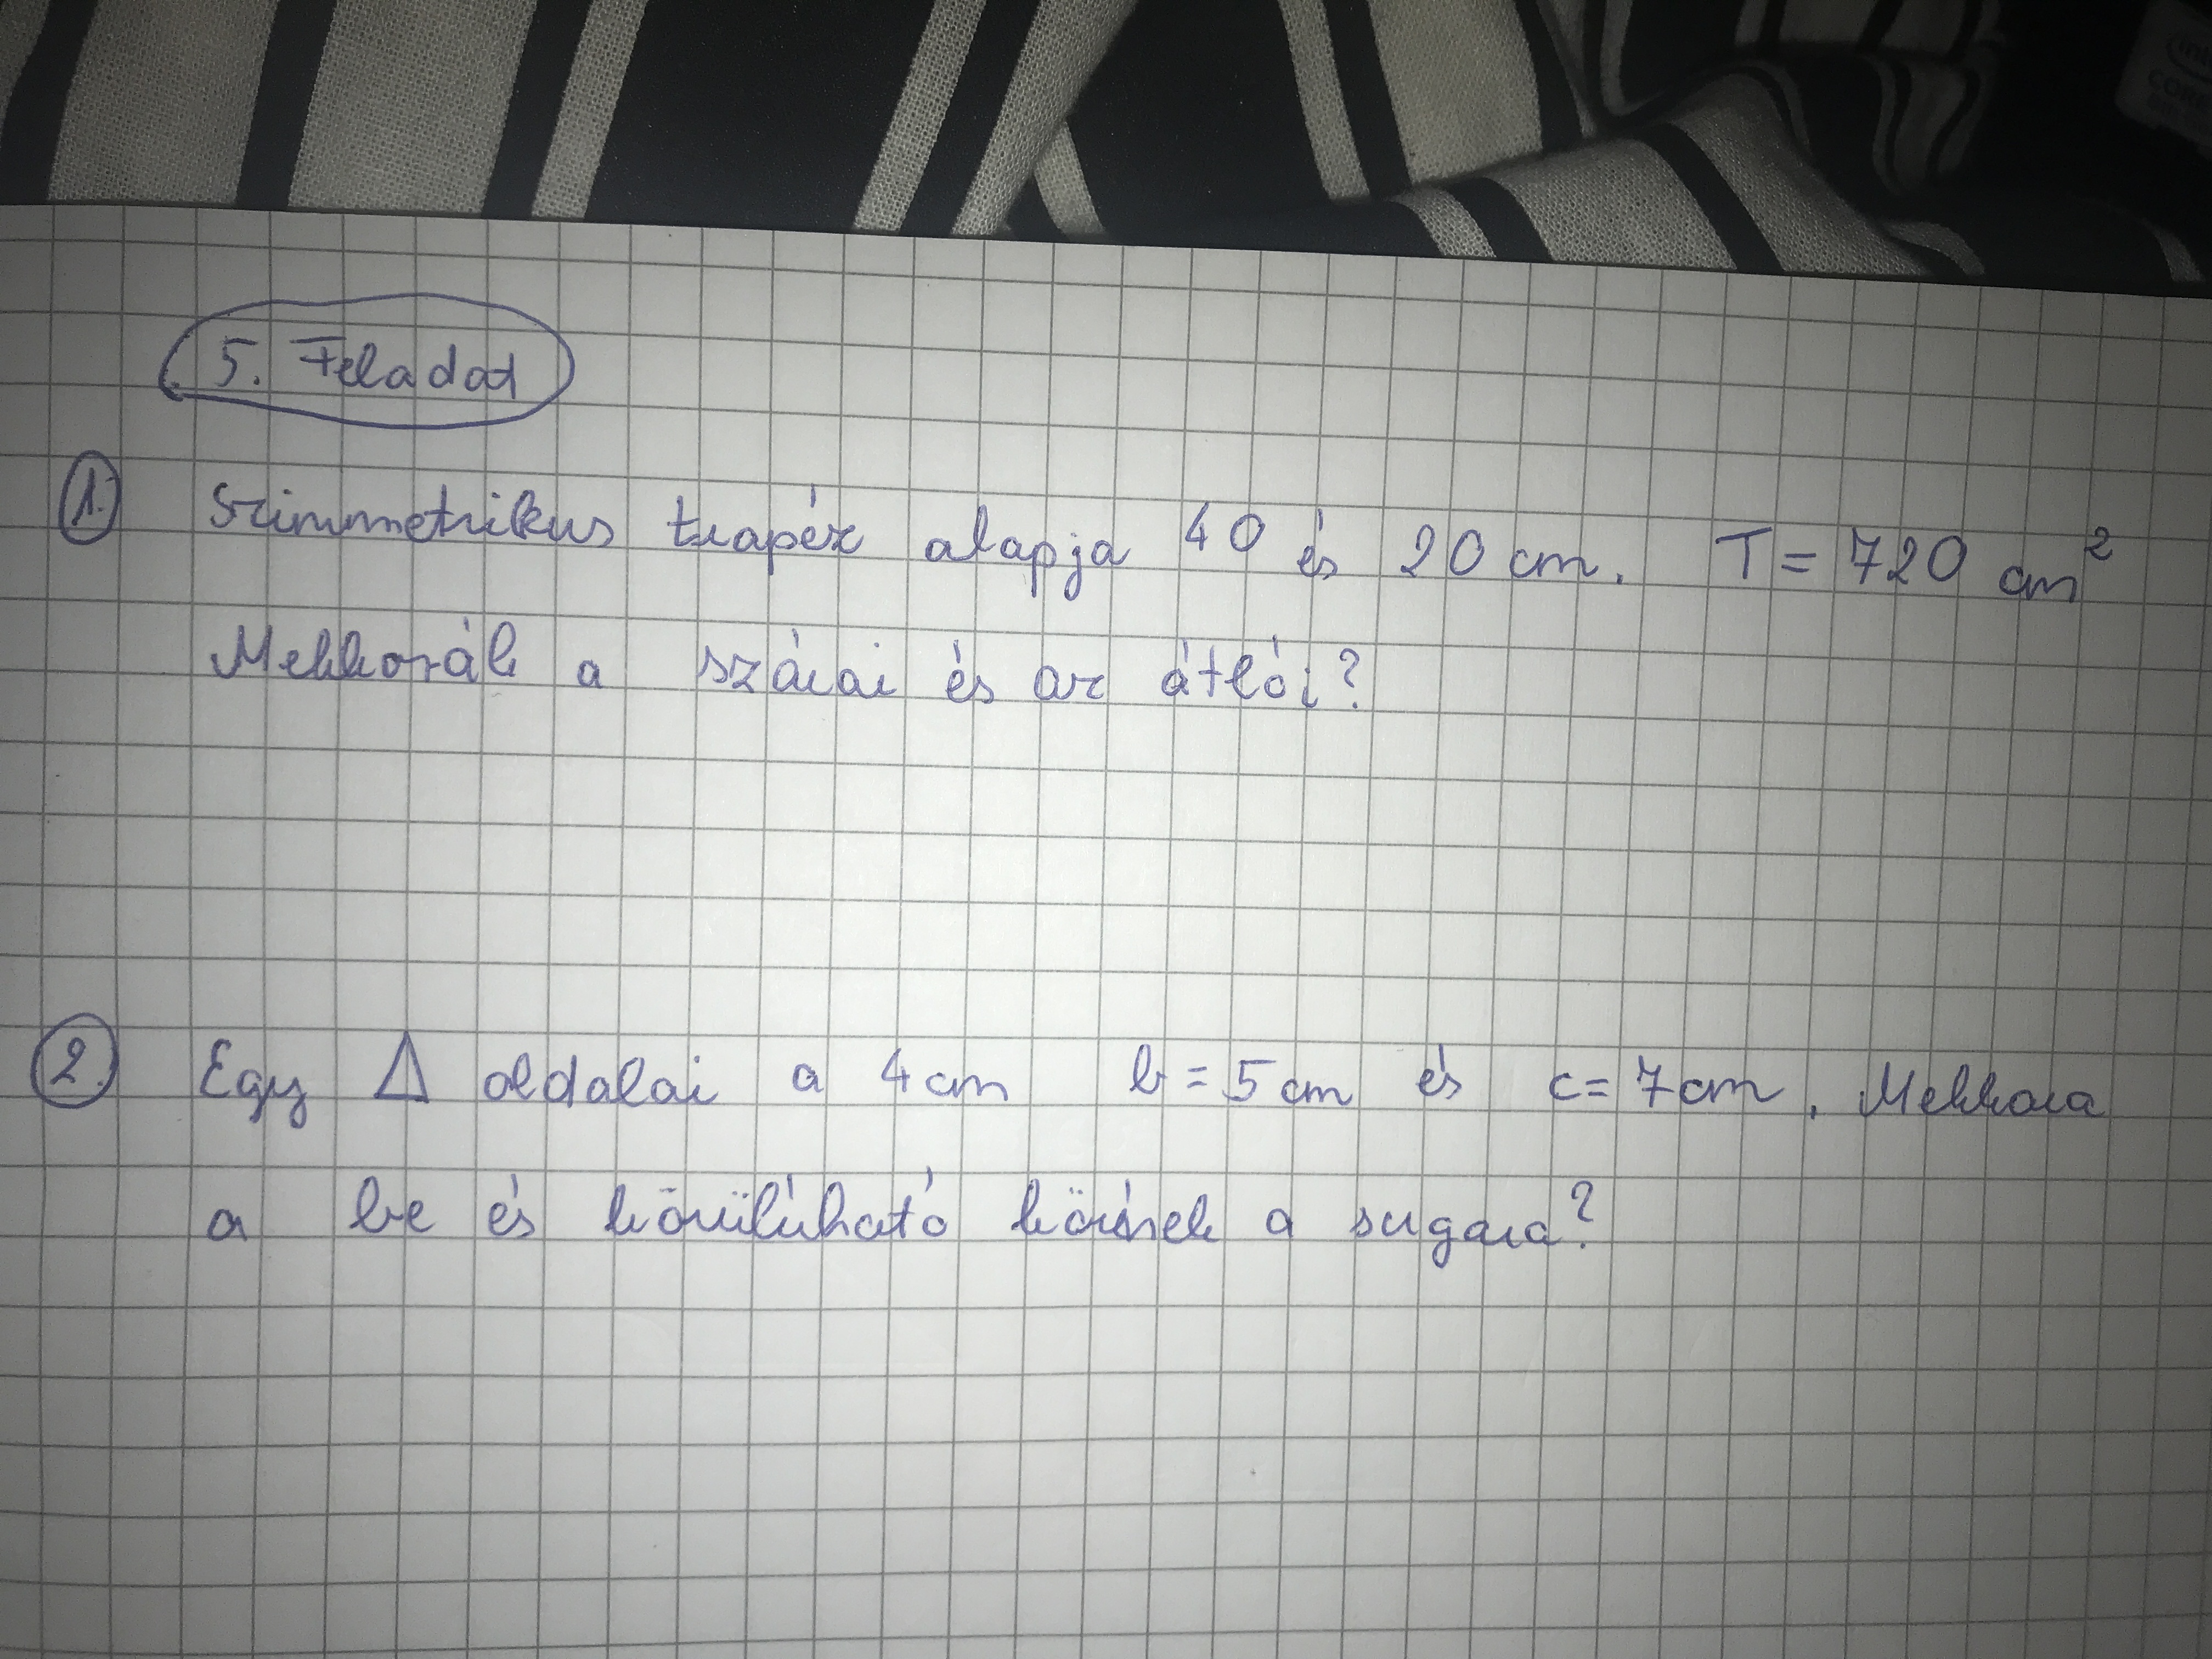 5. Feladat
1. Szimmetrikus trapéz alapja 40 és 20 cm. T = 720 cm²
Mekkorák a szárai és az átlói?
2. Egy Δ oldalai a 4 cm b = 5 cm és c = 7 cm. Mekkora
a be és körülírható körének a sugara?